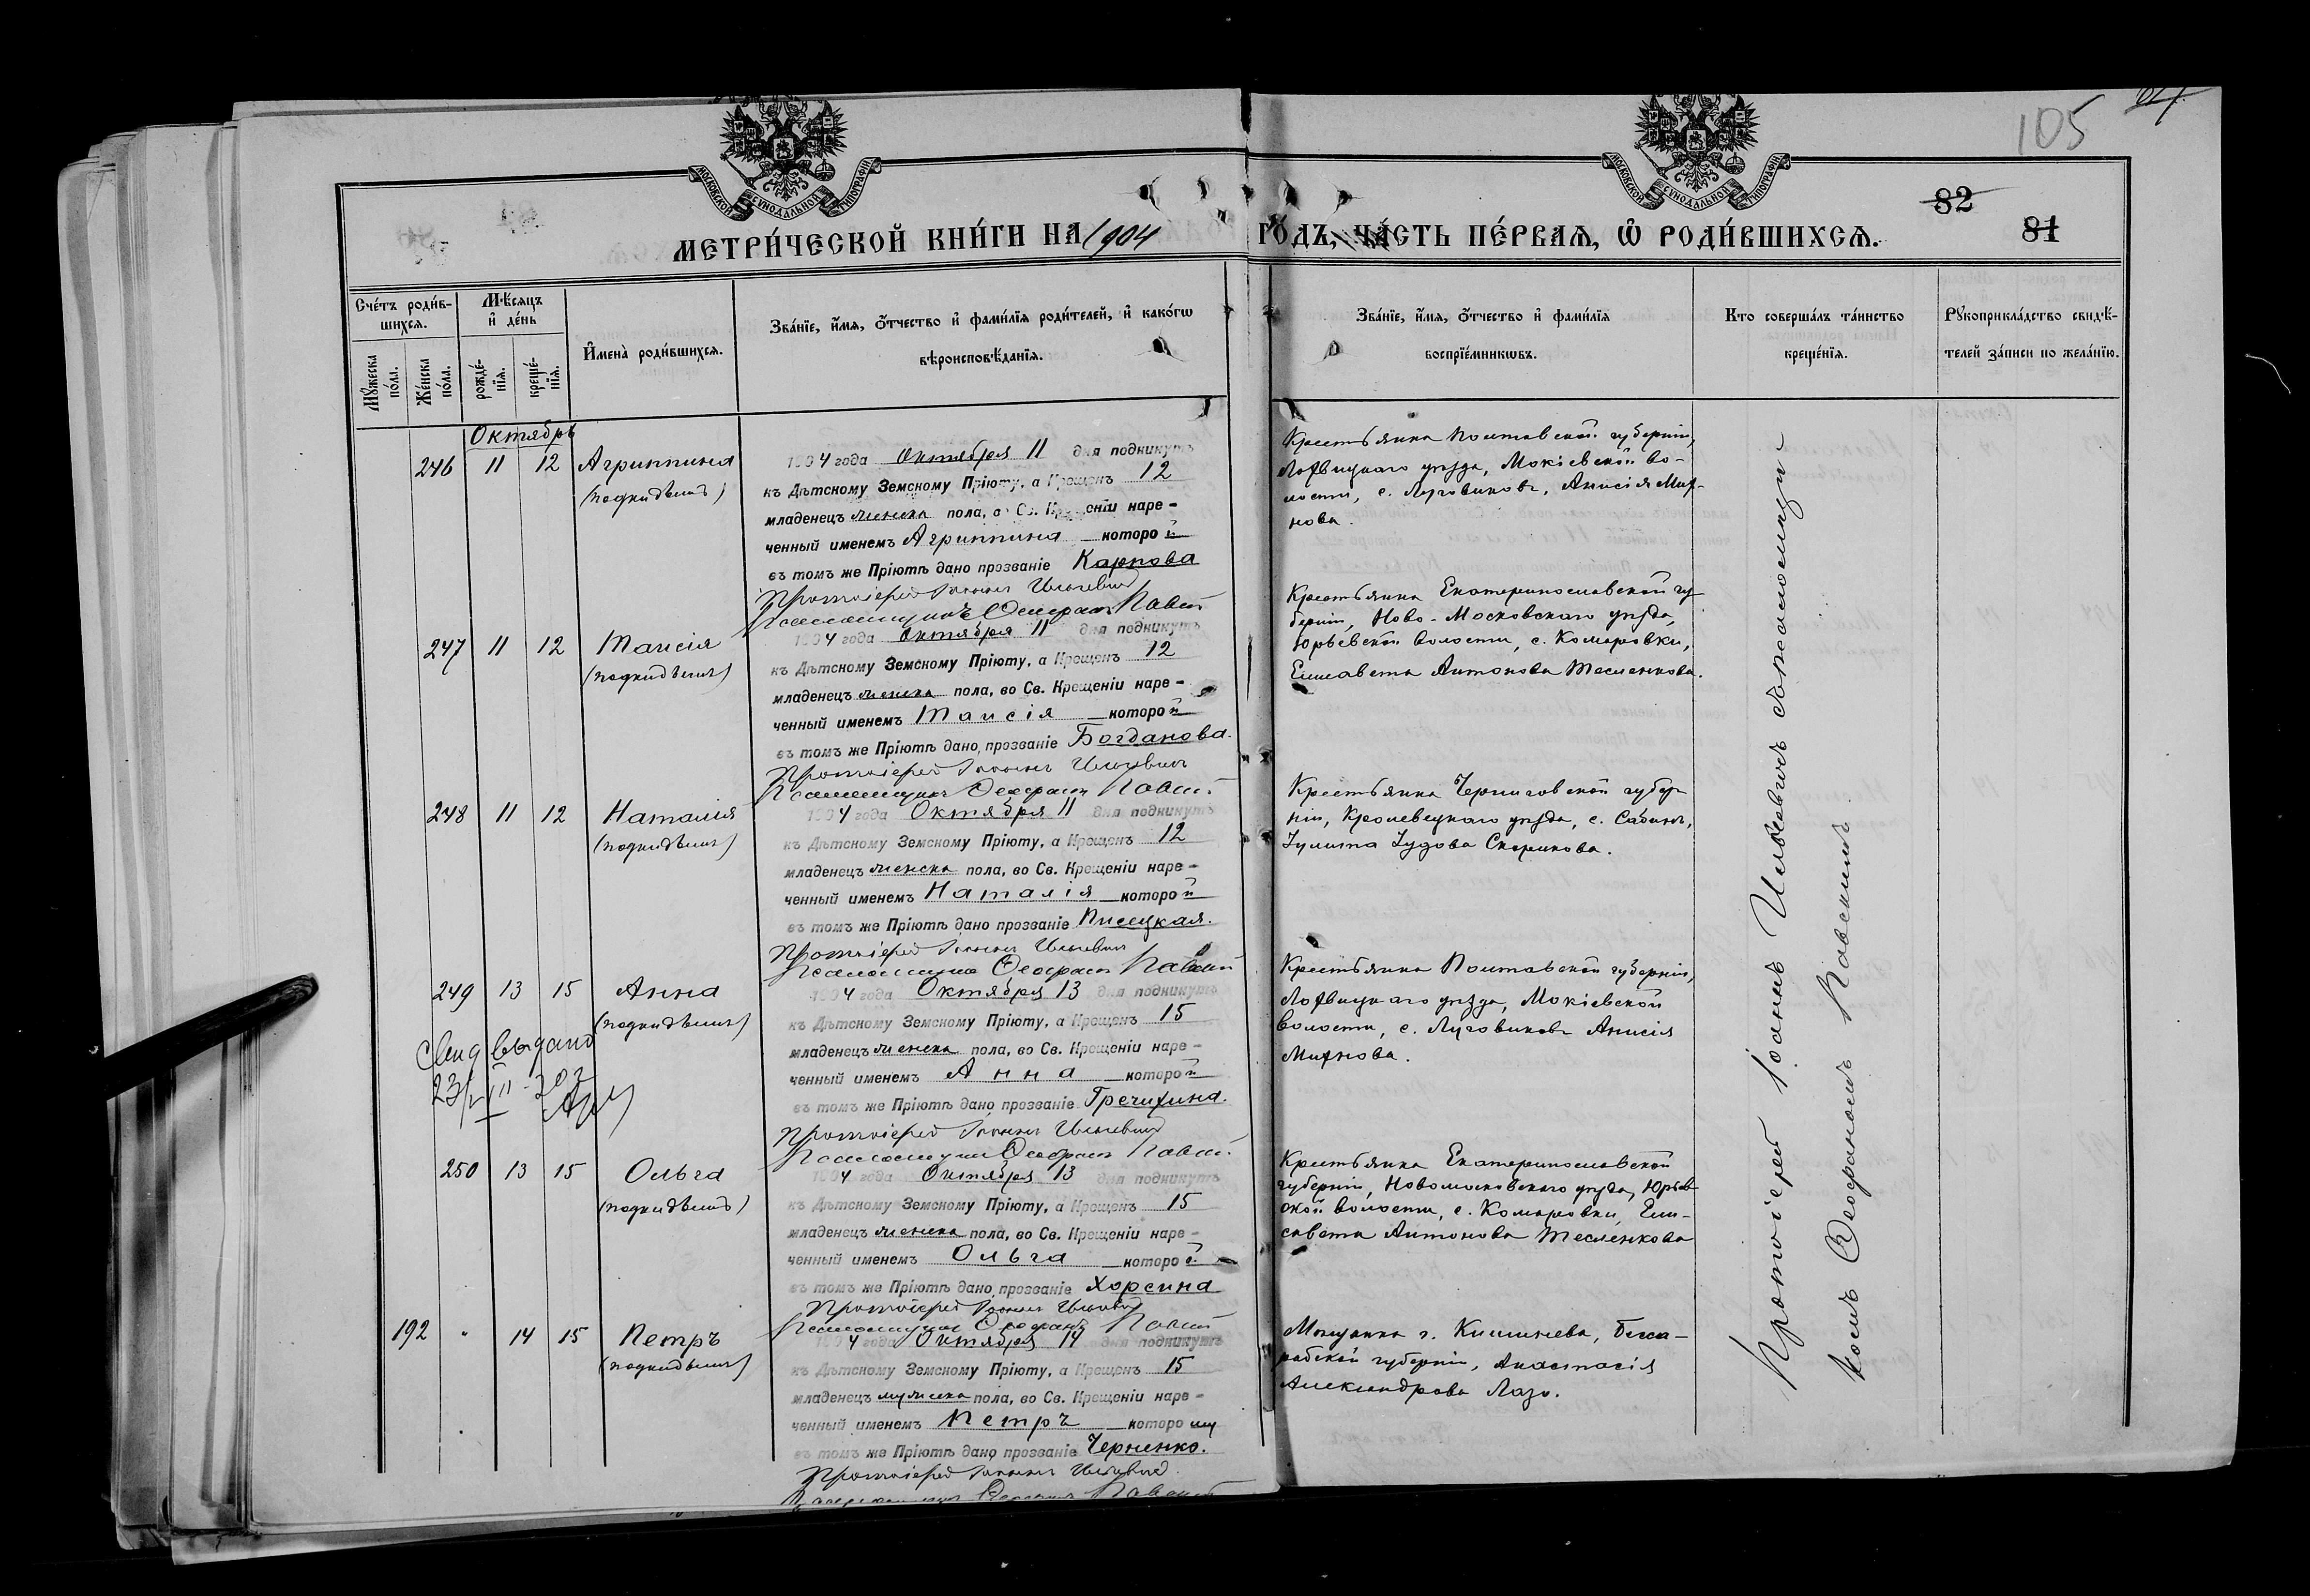 105
82
81
МОСКОВСКОЙ СѴНОДАЛЬНОЙ ТИПОГРАФІИ
МОСКОВСКОЙ СѴНОДАЛЬНОЙ ТИПОГРАФІИ
МЕТРИ́ЧЕСКОЙ КНИ́ГИ НА 1904 ГО́ДЪ, ЧА́СТЬ ПЕ́РВАѦ, Ѽ РОДИ́ВШИХСѦ.
Сче́тъ роди́в-
шихсѧ.
Мꙋ́жеска по́ла.
Же́нска по́ла.
Мѣ́сѧцъ и҆ де́нь
рожде́-
нїѧ.
креще́-
нїѧ.
И҆мена̀ роди́вшихсѧ.
Зва́нїе, и҆́мѧ, ѻ҆́тчество и҆ фами́лїѧ роди́телей, и҆ како́гѡ
вѣроисповѣ́данїѧ.
Зва́нїе, и҆́мѧ, ѻ҆́тчество и҆ фами́лїѧ
воспрїе́мникѡвъ.
Кто соверша́лъ та́инство
креще́нїѧ.
Рꙋкоприкла́дство свидѣ́-
телей за́писи по жела́нїю.
Октябрь
246 11 12 Агриппина
(подкидышъ)
1904 года Октября 11 дня подкинутъ
къ Дѣтскому Земскому Пріюту, а Крещенъ 12
младенецъ женска пола, во Св. Крещеніи наре-
ченный именемъ Агриппина которой
въ томъ же Пріютѣ дано прозваніе Карпова
Протоіерей Іоаннъ Илькевичъ
Псаломщикъ Ѳеофанъ Павскій
Крестьянка Полтавской губерніи,
Лохвицкаго уѣзда, Мокіевской во-
лости, с. Луговиковъ, Анисія Мих-
нова.
247 11 12 Таисія
(подкидышъ)
1904 года Октября 11 дня подкинутъ
къ Дѣтскому Земскому Пріюту, а Крещенъ 12
младенецъ женска пола, во Св. Крещеніи наре-
ченный именемъ Таисія которой
въ томъ же Пріютѣ дано прозваніе Богданова.
Протоіерей Іоаннъ Илькевичъ
Псаломщикъ Ѳеофанъ Павскій
Крестьянка Екатеринославской гу-
берніи, Ново-Московскаго уѣзда,
Юрьевской волости, с. Комаровки,
Елисавета Антонова Тесленкова.
248 11 12 Наталія
(подкидышъ)
1904 года Октября 11 дня подкинутъ
къ Дѣтскому Земскому Пріюту, а Крещенъ 12
младенецъ женска пола, во Св. Крещеніи наре-
ченный именемъ Наталія которой
въ томъ же Пріютѣ дано прозваніе Писецкая.
Протоіерей Іоаннъ Илькевичъ
Псаломщикъ Ѳеофанъ Павскій
Крестьянка Черниговской губер-
ніи, Кролевецкаго уѣзда, с.
Іулита Іудова Скорикова.
249 13 15 Анна
(подкидышъ)
Свид выдано
1904 года Октября 13 дня подкинутъ
къ Дѣтскому Земскому Пріюту, а Крещенъ 15
младенецъ женска пола, во Св. Крещеніи наре-
ченный именемъ Анна которой
въ томъ же Пріютѣ дано прозваніе Гречихина.
Протоіерей Іоаннъ Илькевичъ
Псаломщикъ Ѳеофанъ Павскій
Крестьянка Полтавской губерніи,
Лохвицкаго уѣзда, Мокіевской
волости, с. Луговиковъ Анисія
Михнова.
250 13 15 Ольга
(подкидышъ)
1904 года Октября 13 дня подкинутъ
къ Дѣтскому Земскому Пріюту, а Крещенъ 15
младенецъ женска пола, во Св. Крещеніи наре-
ченный именемъ Ольга которой
въ томъ же Пріютѣ дано прозваніе Хорсина
Протоіерей Іоаннъ Илькевичъ
Псаломщикъ Ѳеофанъ Павскій
Крестьянка Екатеринославской
губерніи, Новомосковскаго уѣзда, Юрьев-
ской волости, с. Комаровки, Ели-
савета Антонова Тесленкова
192 " 14 15 Петръ
(подкидышъ)
1904 года Октября 14 дня подкинутъ
къ Дѣтскому Земскому Пріюту, а Крещенъ 15
младенецъ мужска пола, во Св. Крещеніи наре-
ченный именемъ Петръ которому
въ томъ же Пріютѣ дано прозваніе Черненко.
Протоіерей Іоаннъ Илькевичъ
Псаломщикъ Ѳеофанъ Павскій
Мѣщанка г. Кишинева, Бесса-
рабской губерніи, Анастасія
Александрова Лазо.
Протоіерей Іоаннъ Илькевичъ съ псаломщи-
комъ Ѳеофаномъ Павскимъ